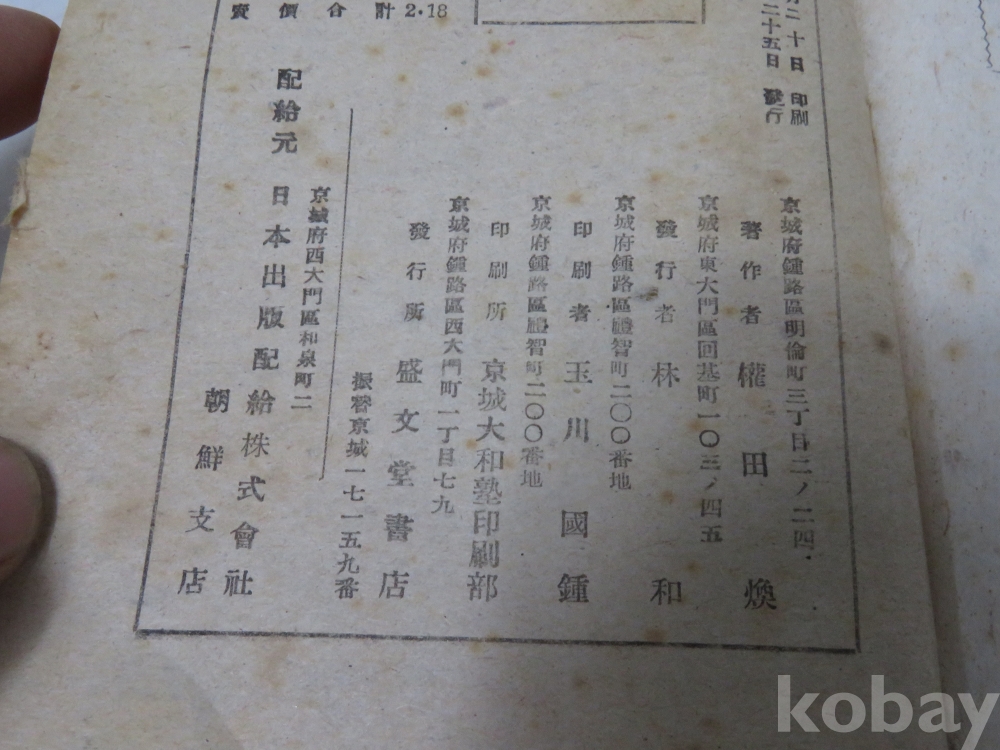 月二十日 印刷
二十五日 發行
京城府鍾路區明倫町三丁目二ノ二四.
著作者 權田煥
京城府東大門區回基町一〇三ノ四五
發行者 林和
京城府鍾路區禮智町二〇〇番地
印刷者 玉川國鍾
京城府鍾路區禮智町二〇〇番地
印刷所 京城大和塾印刷部
京城府鍾路區西大門町一丁目七九
發行所 盛文堂書店
振替京城一七一五九番
京城府西大門區和泉町二
配給元 日本出版配給株式會社
朝鮮支店
賣價合計2.18
kobay